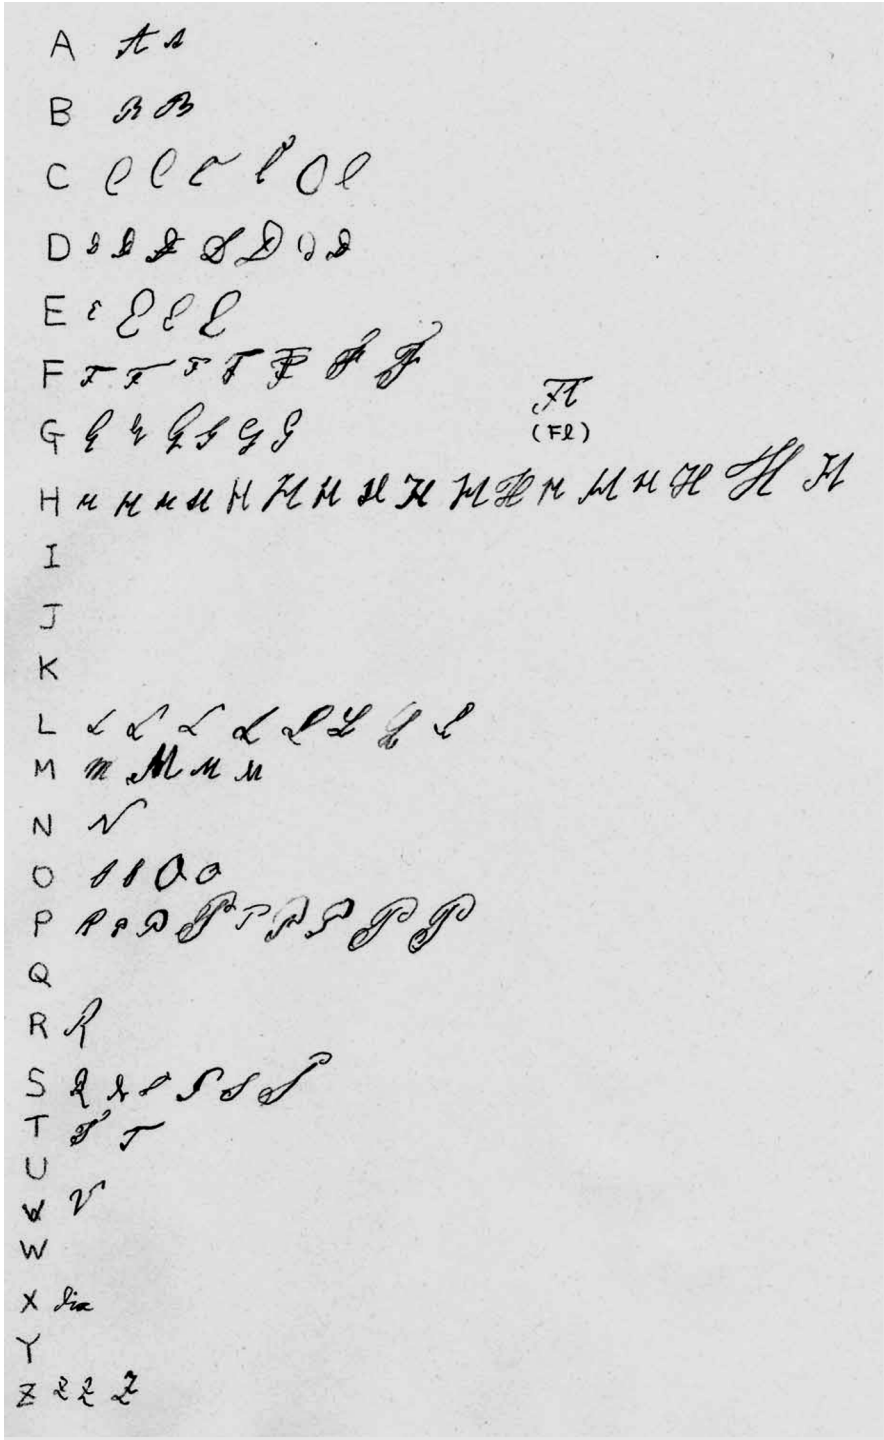 A A A
B B B
C C C C C C C
D D D D D D D D
E E E E E
F F F F F F F F
Fl
(Fl)
G G G G G G G
H H H H H H H H H H H H H H H H H H
I
J
K
L L L L L L L L L
M M M M M
N N
O O O O O
P P P P P P P P P P
Q
R R
S S S S S S S
T T T
U
V V
W
X dix
Y
Z Z Z Z